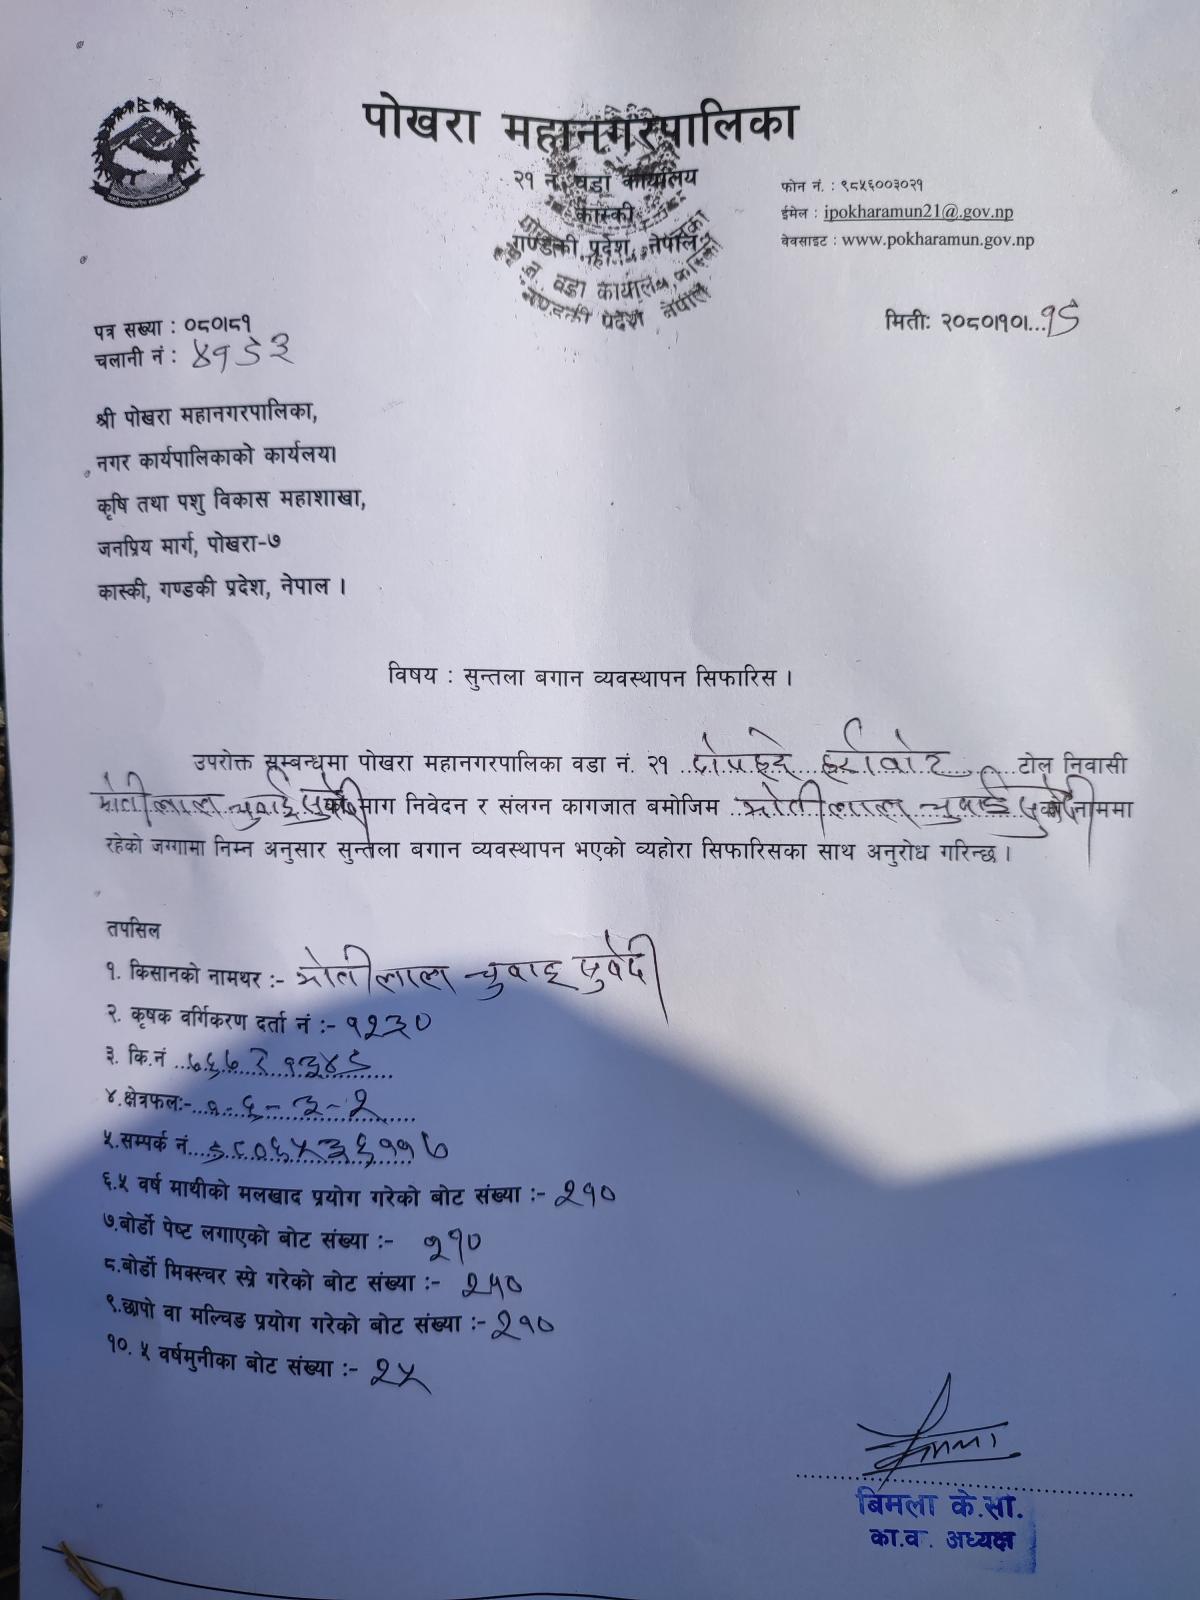 पोखरा महानगरपालिका
२१ नं. वडा कार्यालय
कास्की
गण्डकी प्रदेश, नेपाल
फोन नं. : ९८५६००३०२१
ईमेल : ipokharamun21@.gov.np
वेवसाइट : www.pokharamun.gov.np
पत्र सख्या : ०८०।८१
चलानी नं : ४१९३
मिती: २०८०।१०।...१९
श्री पोखरा महानगरपालिका,
नगर कार्यपालिकाको कार्यलय।
कृषि तथा पशु विकास महाशाखा,
जनप्रिय मार्ग, पोखरा-७
कास्की, गण्डकी प्रदेश, नेपाल ।
विषय : सुन्तला बगान व्यवस्थापन सिफारिस ।
उपरोक्त सम्बन्धमा पोखरा महानगरपालिका वडा नं. २१ टोल निवासी
मोतीलाल सुवेदीको माग निवेदन र संलग्न कागजात बमोजिम मोतीलाल सुवेदीको नाममा
रहेको जग्गामा निम्न अनुसार सुन्तला बगान व्यवस्थापन भएको व्यहोरा सिफारिसका साथ अनुरोध गरिन्छ ।
तपसिल
१. किसानको नामथर :- मोतीलाल सुवेदी
२. कृषक वर्गिकरण दर्ता नं :- १२३०
३. कि.नं
४.क्षेत्रफल:- १-६-३-२
५.सम्पर्क नं. ९८०६५३६११७
६.५ वर्ष माथीको मलखाद प्रयोग गरेको बोट संख्या :- २१०
७.बोर्डो पेष्ट लगाएको बोट संख्या :- २१०
८.बोर्डो मिक्स्चर स्प्रे गरेको बोट संख्या :- २५०
९.छापो वा मल्चिङ प्रयोग गरेको बोट संख्या :- २१०
१०. ५ वर्षमुनीका बोट संख्या :- २५
बिमला के.सी.
का.व. अध्यक्ष